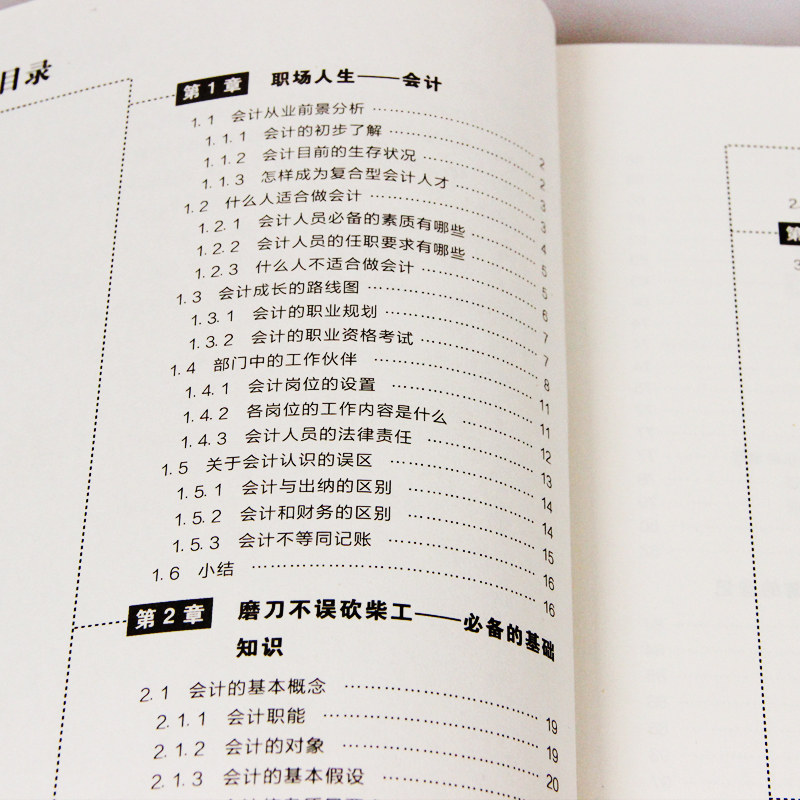 目录
第1章 职场人生——会计
1.1 会计从业前景分析 …… 2
1.1.1 会计的初步了解 …… 2
1.1.2 会计目前的生存状况 …… 3
1.1.3 怎样成为复合型会计人才 …… 3
1.2 什么人适合做会计 …… 4
1.2.1 会计人员必备的素质有哪些 …… 5
1.2.2 会计人员的任职要求有哪些 …… 5
1.2.3 什么人不适合做会计 …… 6
1.3 会计成长的路线图 …… 7
1.3.1 会计的职业规划 …… 7
1.3.2 会计的职业资格考试 …… 8
1.4 部门中的工作伙伴 …… 11
1.4.1 会计岗位的设置 …… 11
1.4.2 各岗位的工作内容是什么 …… 12
1.4.3 会计人员的法律责任 …… 13
1.5 关于会计认识的误区 …… 14
1.5.1 会计与出纳的区别 …… 14
1.5.2 会计和财务的区别 …… 15
1.5.3 会计不等同记账 …… 16
1.6 小结 …… 16
第2章 磨刀不误砍柴工——必备的基础
知识
2.1 会计的基本概念 …… 19
2.1.1 会计职能 …… 19
2.1.2 会计的对象 …… 20
2.1.3 会计的基本假设 ……
2.
第
3